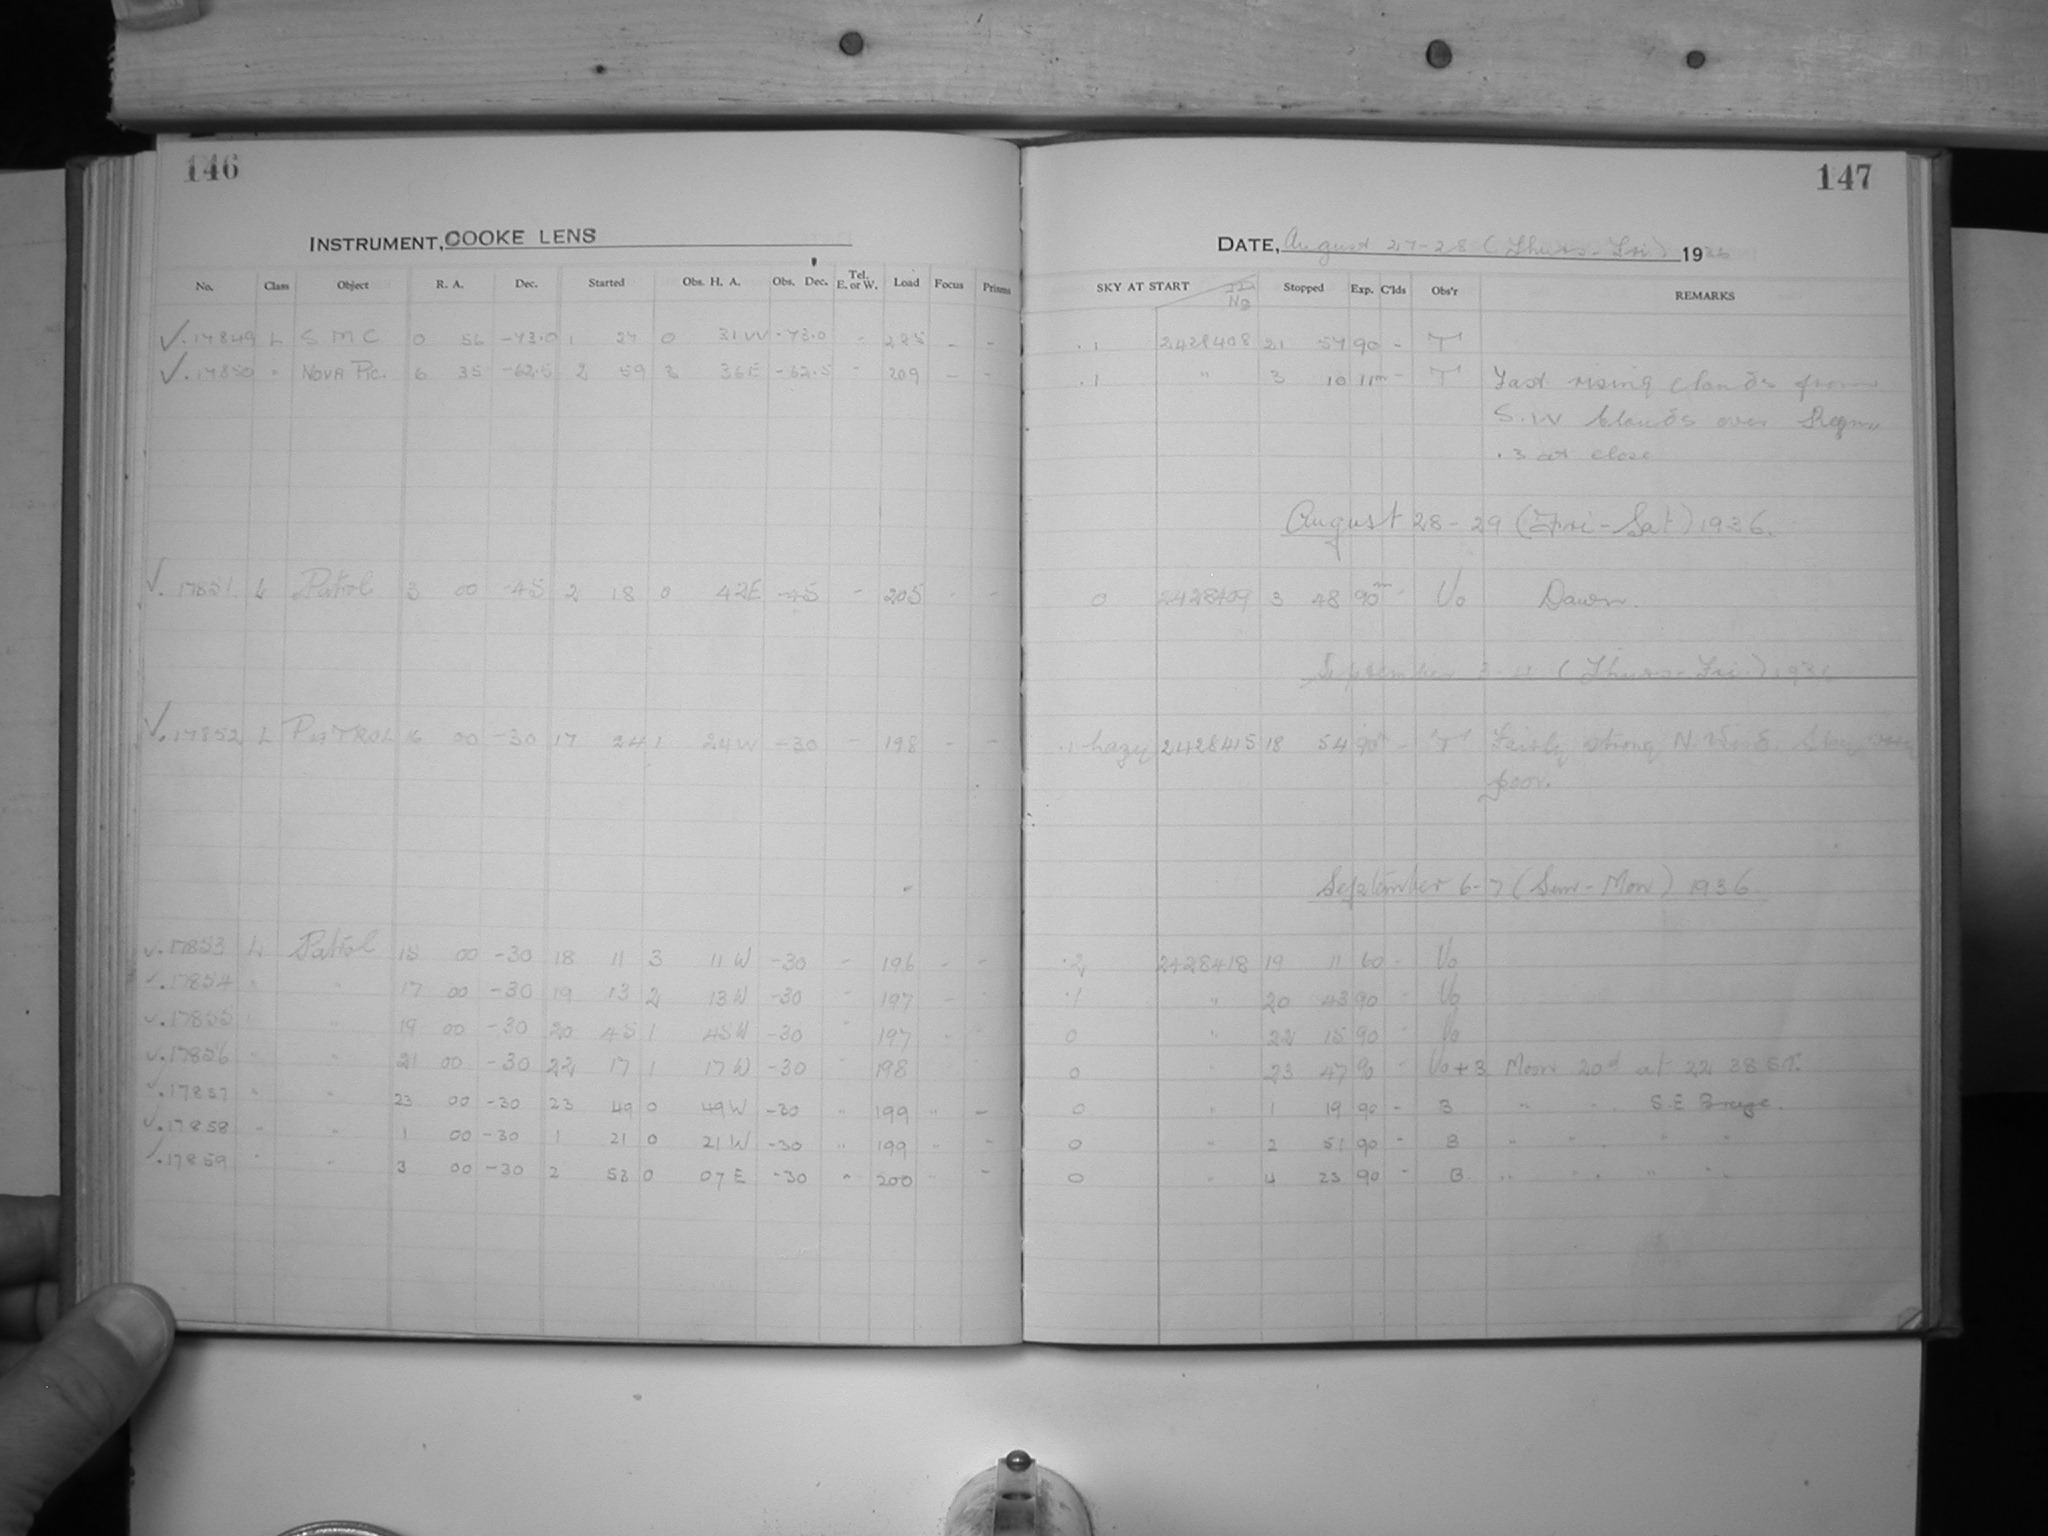 146
INSTRUMENT, COOKE LENS
No. Class Object R. A. Dec. Started Obs. H. A. Obs. Dec. Tel. E. or W. Load Focus Prisms
✓.17849 L SMC 0 56 -73.0 1 27 0 31W -73.0 " 225 - -
✓.17850 " NOVA Pic. 6 35 -62.5 2 59 3 36E -62.5 " 209 - -
✓. 17851. L Patrol 3 00 -45 2 18 0 42E -45 - 205 - -
✓.17852 L PATROL 16 00 -30 17 24 1 24W -30 - 198 - -
✓.17853 L Patrol 15 00 -30 18 11 3 11W -30 - 196 - -
✓.17854 " " 17 00 -30 19 13 2 13W -30 " 197 - -
✓.17855 " " 19 00 -30 20 45 1 45W -30 " 197 - -
✓.17856 " " 21 00 -30 22 17 1 17W -30 " 198
✓.17857 " " 23 00 -30 23 49 0 49W -30 " 199 " -
✓.17858 " " 1 00 -30 1 21 0 21W -30 " 199 " -
✓.17859 " " 3 00 -30 2 53 0 07E -30 " 200 " -
147
DATE, August 27-28 (Thurs-Fri) 1936
SKY AT START JD No Stopped Exp. C'lds Obs'r REMARKS
.1 2428408 21 57 90 - T
.1 " 3 10 11m - T Fast rising clouds from
S.W Clouds over
.3 at close
August 28-29 (Fri-Sat) 1936.
0 2428409 3 48 90m - Vo Dawn.
September 3-4 (Thurs-Fri.) 1936
.1 hazy 2428415 18 54 90m - T Fairly strong N. Wind. Sky very
poor.
September 6-7 (Sun-Mon) 1936
.2 2428418 19 11 60 - Vo
.1 " 20 43 90 - Vo
0 " 22 15 90 " Vo
0 " 23 47 90 - Vo+B Moon 20d at 22 38 S.T.
0 " 1 19 90 - B " " S.E Breeze.
0 " 2 51 90 - B " " " "
0 " 4 23 90 - B. " " " "